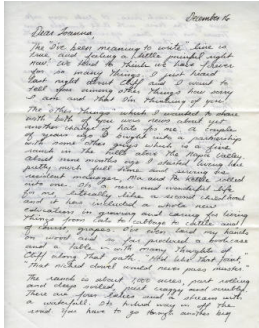 December 16
Dear Joanna,
The I've been meaning to write" line is
true and feeling a little painful right
now. We tend to think we have forever
for so many things. I just heard
last night about Cliff and I want to
tell you among other things how sorry
I am and that I'm thinking of you.
The other things which I wanted to share
with both of you was news about yet
another change of state for me. A couple
of years ago I bought into a partnership
with some other guys which is a
ranch in the hills above the Napa Valley
about nine months ago I started living there
pretty much full time and being the
resident manager, etc and the settler
into one. It's a new and wonderful life
for me - literally like a second childhood
and it has included a whole new
education in growing and caring for living
things from cats to cabbage to cattle and
of course, grapes. I've even laid my hands
on wood and so far produced a bookcase
and a table - with many thoughts of
Cliff along that path. "Not like that,
That wicked dowel would never pass muster"
The ranch is about acres, part rolling
and steep wooded, part craggy and
There are four lakes and a stream with
a waterfall. It's a hard way in off the
road. You have to go through another big